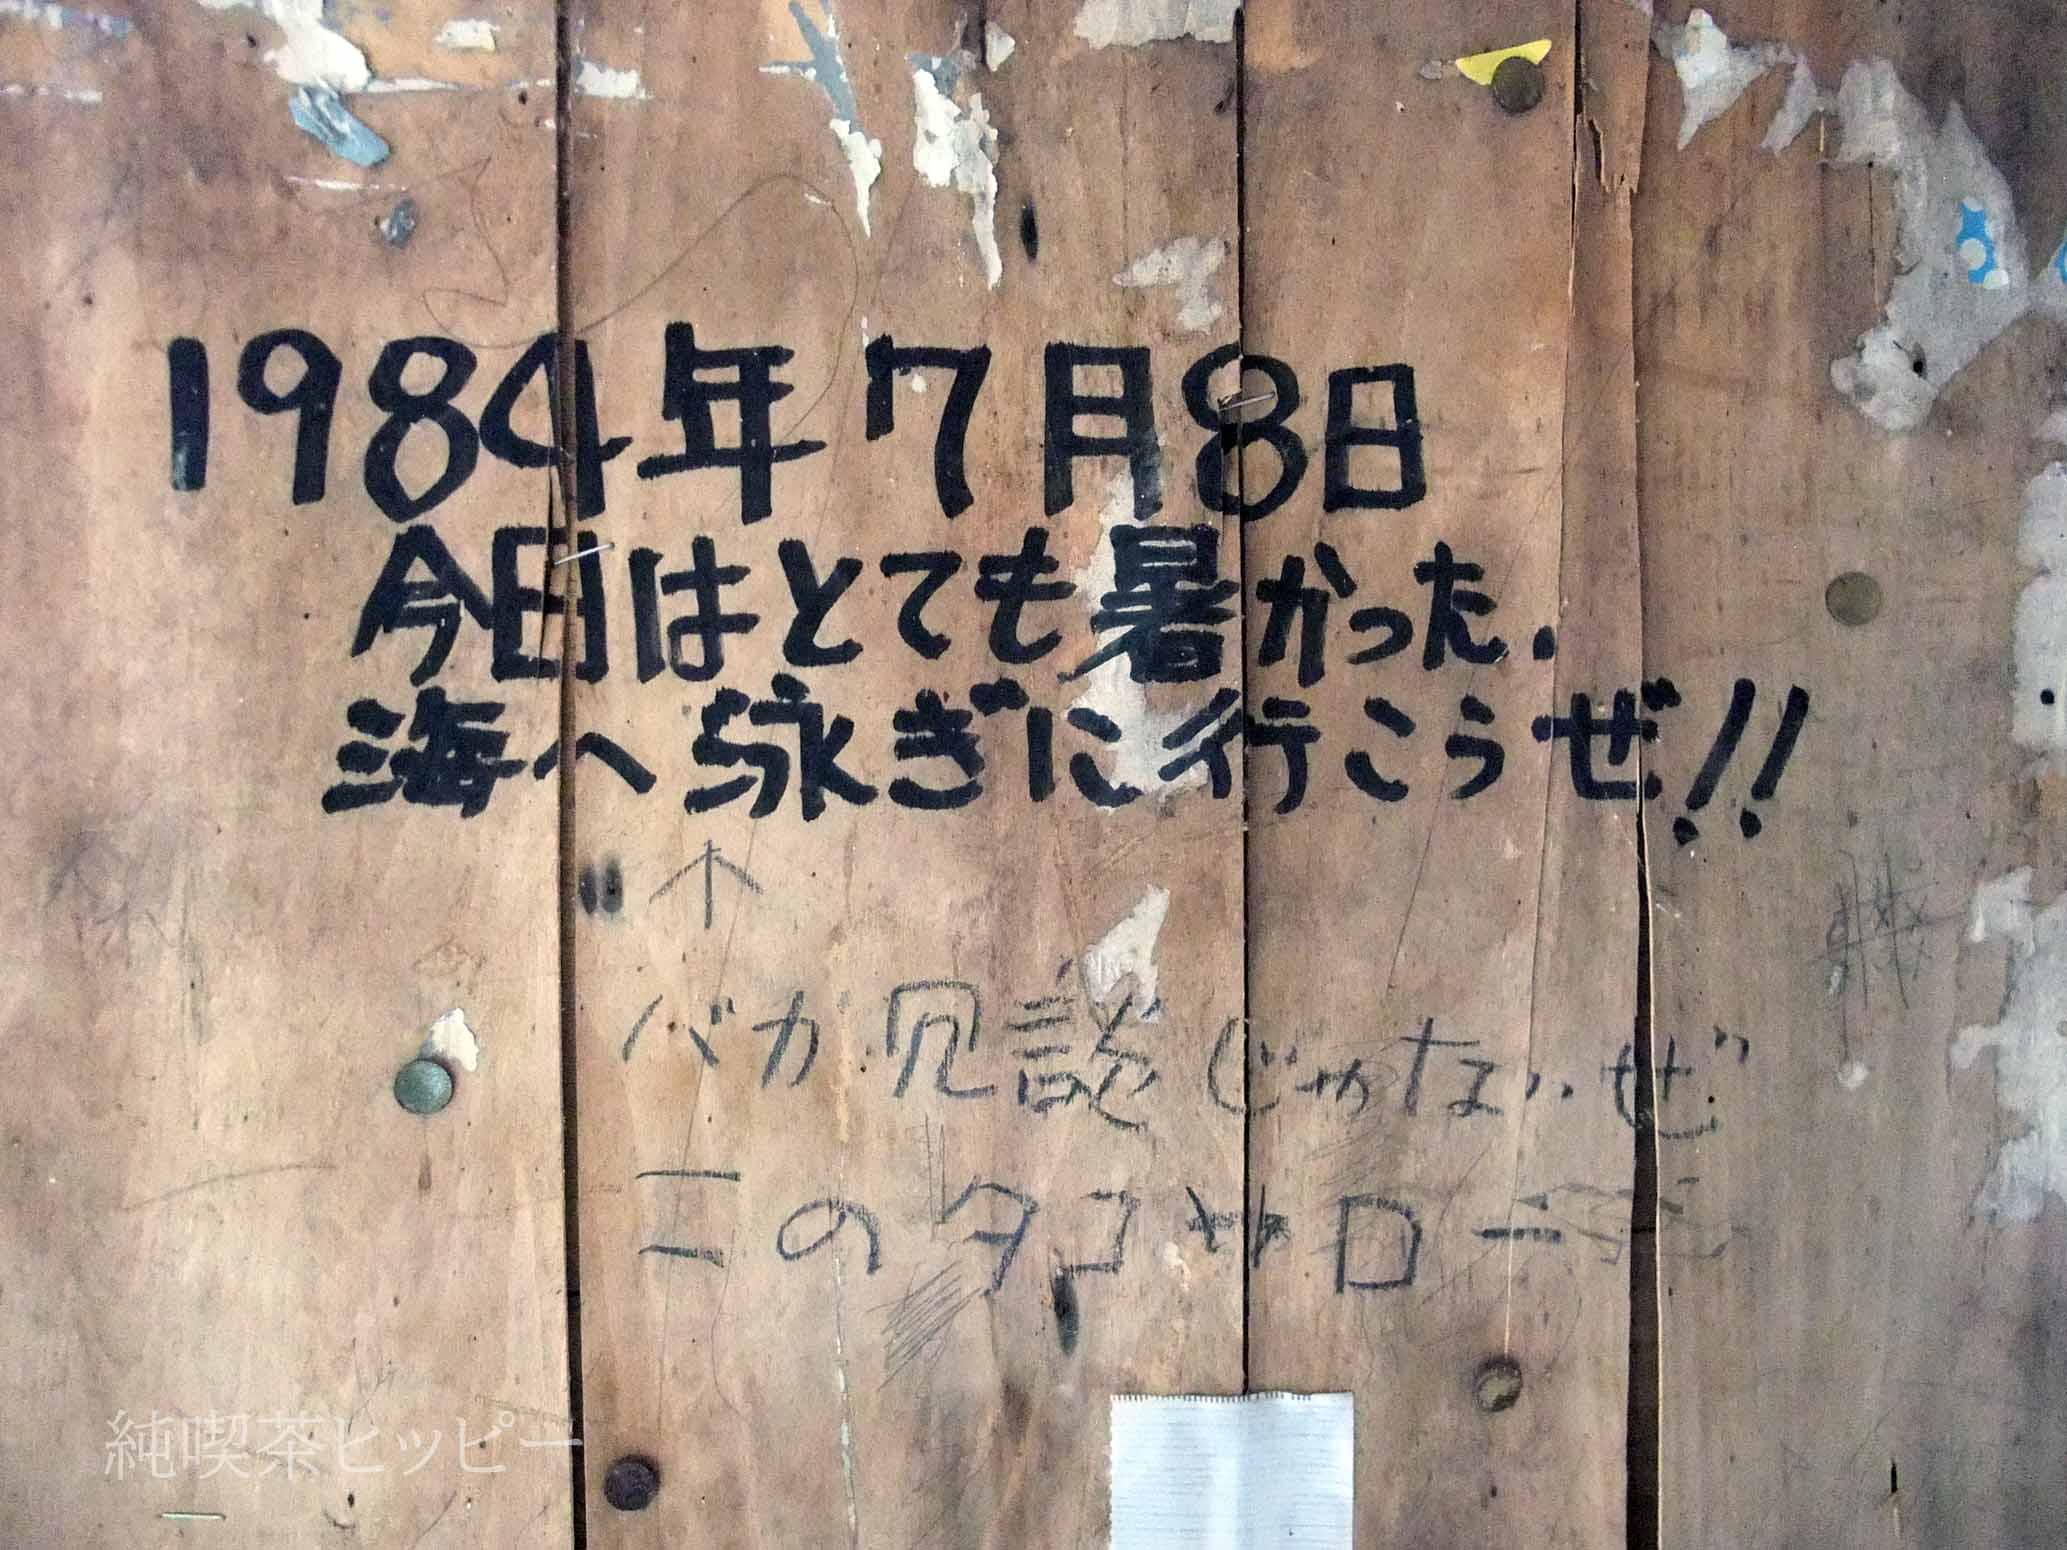 1984年7月8日
今日はとても暑かった.
海へ泳ぎに行こうぜ!!
↑
バカ冗談じゃないぜ
このタコヤロー
純喫茶ヒッピー